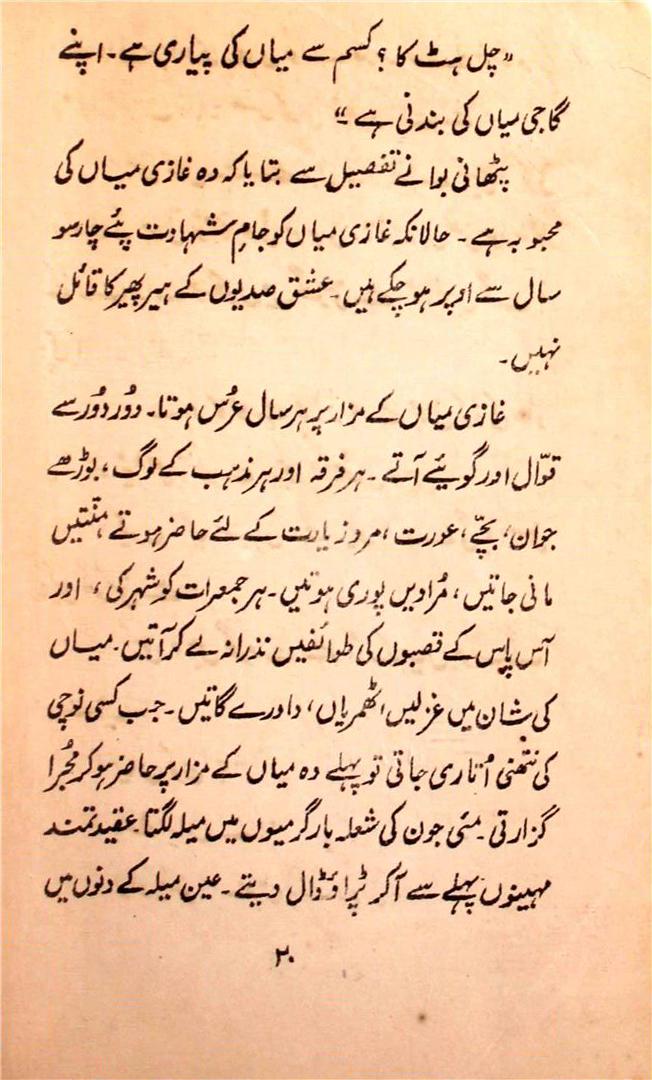 ”چل ہٹ کا؟ کسم سے میاں کی پیاری ہے۔ اپنے
گاجی میاں کی بندنی ہے“
پٹھانی بوا نے تفصیل سے بتایا کہ وہ غازی میاں کی
محبوبہ ہے۔ حالانکہ غازی میاں کو جامِ شہادت پئے چار سو
سال سے اوپر ہو چکے ہیں۔ عشق صدیوں کے ہیر پھیر کا قائل
نہیں۔
غازی میاں کے مزار پر ہر سال عُرس ہوتا۔ دُور دُور سے
قوّال اور گویئے آتے۔ ہر فرقہ اور ہر مذہب کے لوگ، بوڑھے
جوان، بچّے، عورت، مرد زیارت کے لئے حاضر ہوتے، منّتیں
مانی جاتیں، مُرادیں پوری ہوتیں۔ ہر جمعرات کو شہر کی، اور
آس پاس کے قصبوں کی طوائفیں نذرانہ لے کر آتیں۔ میاں
کی شان میں غزلیں، ٹھمریاں، دادرے گاتیں۔ جب کسی نوچی
کی نتھنی اُتاری جاتی تو پہلے وہ میاں کے مزار پر حاضر ہو کر مُجرا
گزارتی۔ مئی جون کی شعلہ بار گرمیوں میں میلہ لگتا۔ عقیدتمند
مہینوں پہلے سے آ کر پڑاؤ ڈال دیتے۔ عین میلہ کے دنوں میں
۲۰